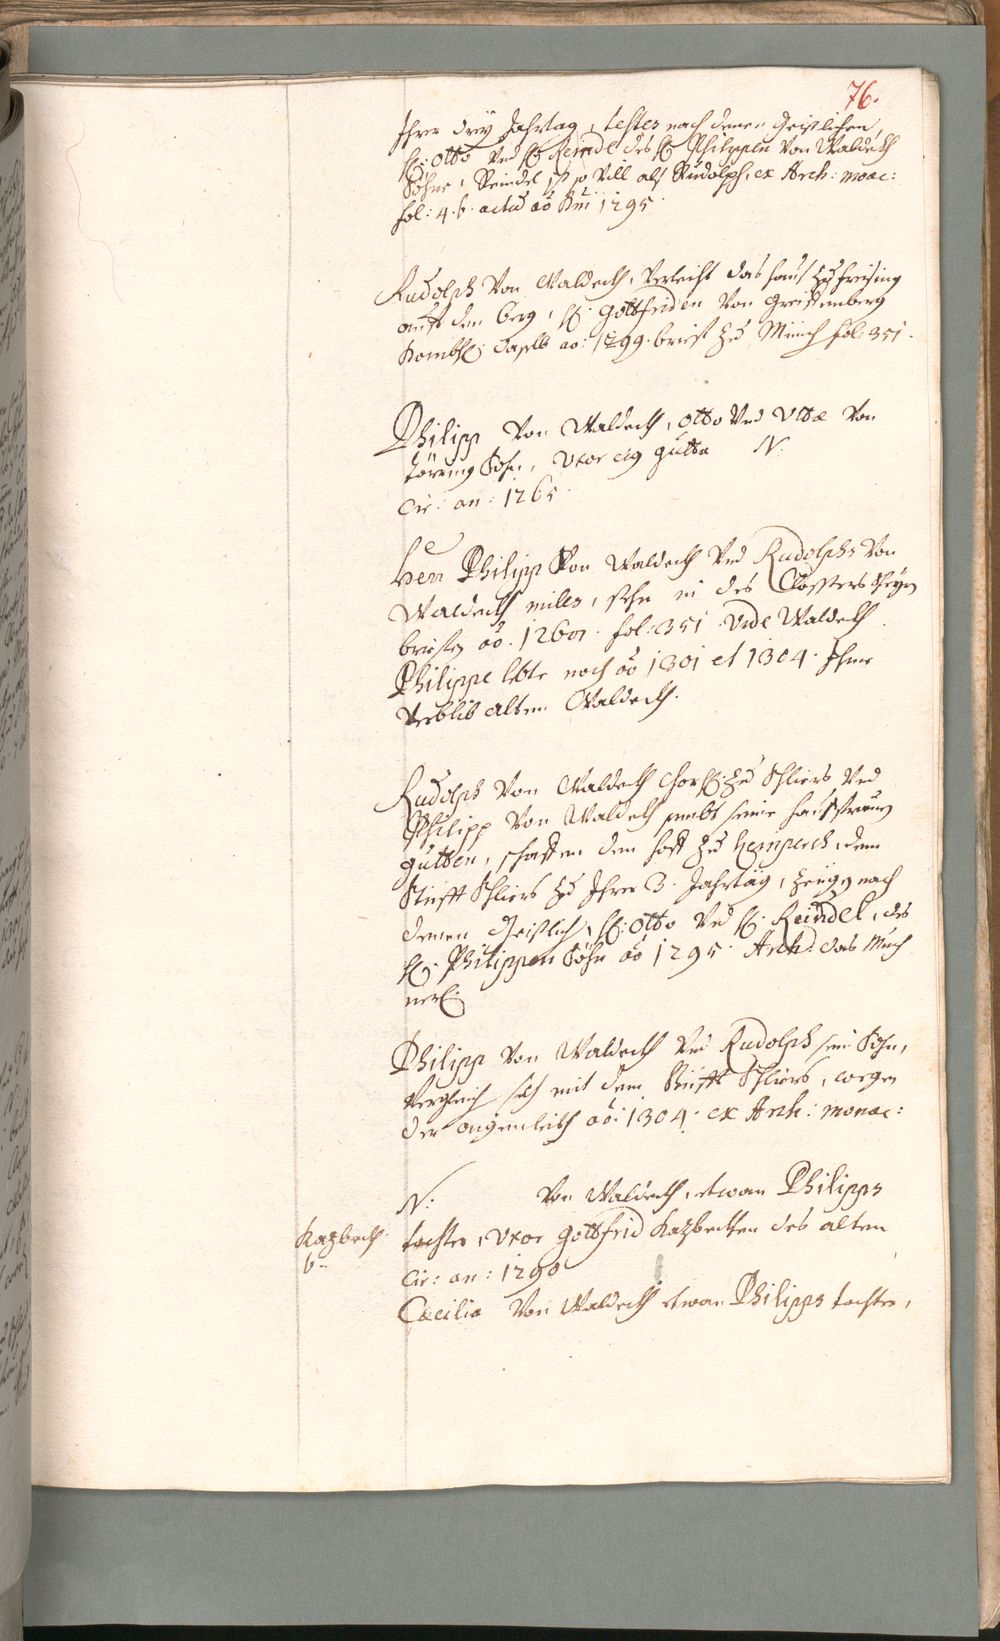 76.
Ihrer drey Jahrtag, testes nach denen Geistlichen,
H: Otto vnd H: Reindl des H: Philippen von Waldeckh
Söhne, Reindel ist so vill als Rudolph, ex Arch: monac:
fol: 4. b. actu ao 1295.
Rudolph von Waldeckh, verleicht das hauß zu freising
auff dem berg, H: Gottfriden von Greiffenberg
Kombh: daselb ao: 1299. brieff zu Münch fol: 351.
Philipp von Waldeckh, Otto vnd Vttæ von
Törring Sohn, Vxor eiq gutta N:
Cir: an: 1265.
Herr Philipp von Waldeckh vnd Rudolphs von
Waldeckh miles, stehn in des Closters
brieffen ao. 1260. fol: 351. Vide Waldeckh
Philippe lebte noch ao 1301 et 1304. Ihme
verblib alten Waldeckh.
Rudolph von Waldeckh Chorh: zu Schliers vnd
Philipp von Waldeckh sambt seiner haußfrauen
gutten, schaffen den hoff zu hemperch, dem
Stüfft Schliers zu Ihren 3. Jahrtäg, Zeugen nach
denen Geistlich, H: Otto vnd H: Reindel, des
H: Philippen Söhn ao 1295. Arch: das Münch
nerl:
Philipp von Waldeckh vnd Rudolph sein Sohn,
vergleich sich mit dem Stüfft Schliers, wegen
der aigenleith ao: 1304. ex Arch: monac:
N: von Waldeckh, etwan Philipps
Kazbeckh tochter, Vxor Gottfrid Kazbeckhen des alten
Cir: an: 1290
Cæcilia von Waldeckh etwan Philipps tochter,